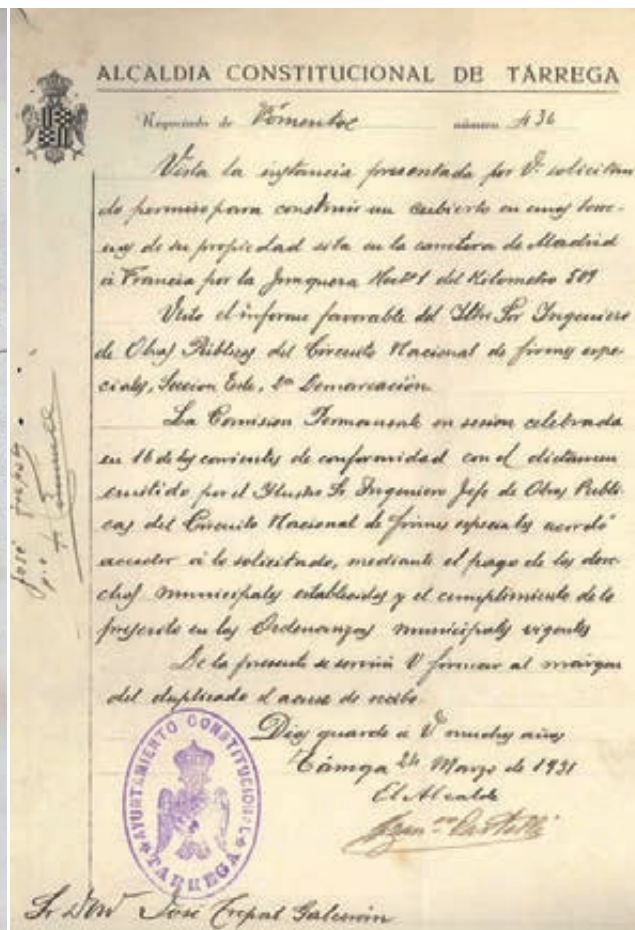 ALCALDIA CONSTITUCIONAL DE TÁRREGA
Negociado de Fomento número 436
Vista la instancia presentada por V. solicitan
do permiso para construir un cubierto en unos terre-
nos de su propiedad sita en la carretera de Madrid
á Francia por la Junquera Hect. 1 del Kilometro 509
Visto el informe favorable del Iltre Sr Ingeniero
de Obras Públicas del Circuito Nacional de firmes espe-
ciales, Seccion Este, 2ª Demarcación.
La Comision Permanente en sesion celebrada
en 16 de los corrientes de conformidad con el dictamen
emitido por el Ilustre Sr Ingeniero Jefe de Obras Publi-
cas del Circuito Nacional de firmes especiales acordó
acceder á lo solicitado, mediante el pago de los dere-
chos municipales establecidos y el cumplimiento de lo
prescrito en las Ordenanzas municipales vigentes
De la presente se servirá V firmar al margen
del duplicado el acuse de recibo.
Dios guarde á V muchos años
Tárrega 24 Marzo de 1931
El Alcalde
AYUNTAMIENTO CONSTITUCIONAL
TARREGA
Sr Don José Trepat Galceran
José Trepat